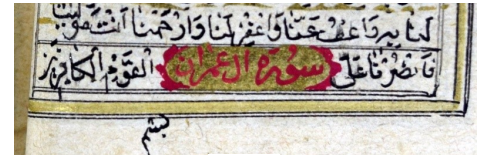 لَنَا بِهِ وَاعْفُ عَنَّا وَاغْفِرْ لَنَا وَارْحَمْنَا أَنْتَ مَوْلَيٰنَا
فَانْصُرْنَا عَلَى سورة آل عمران الْقَوْمِ الْكَافِرِينَ